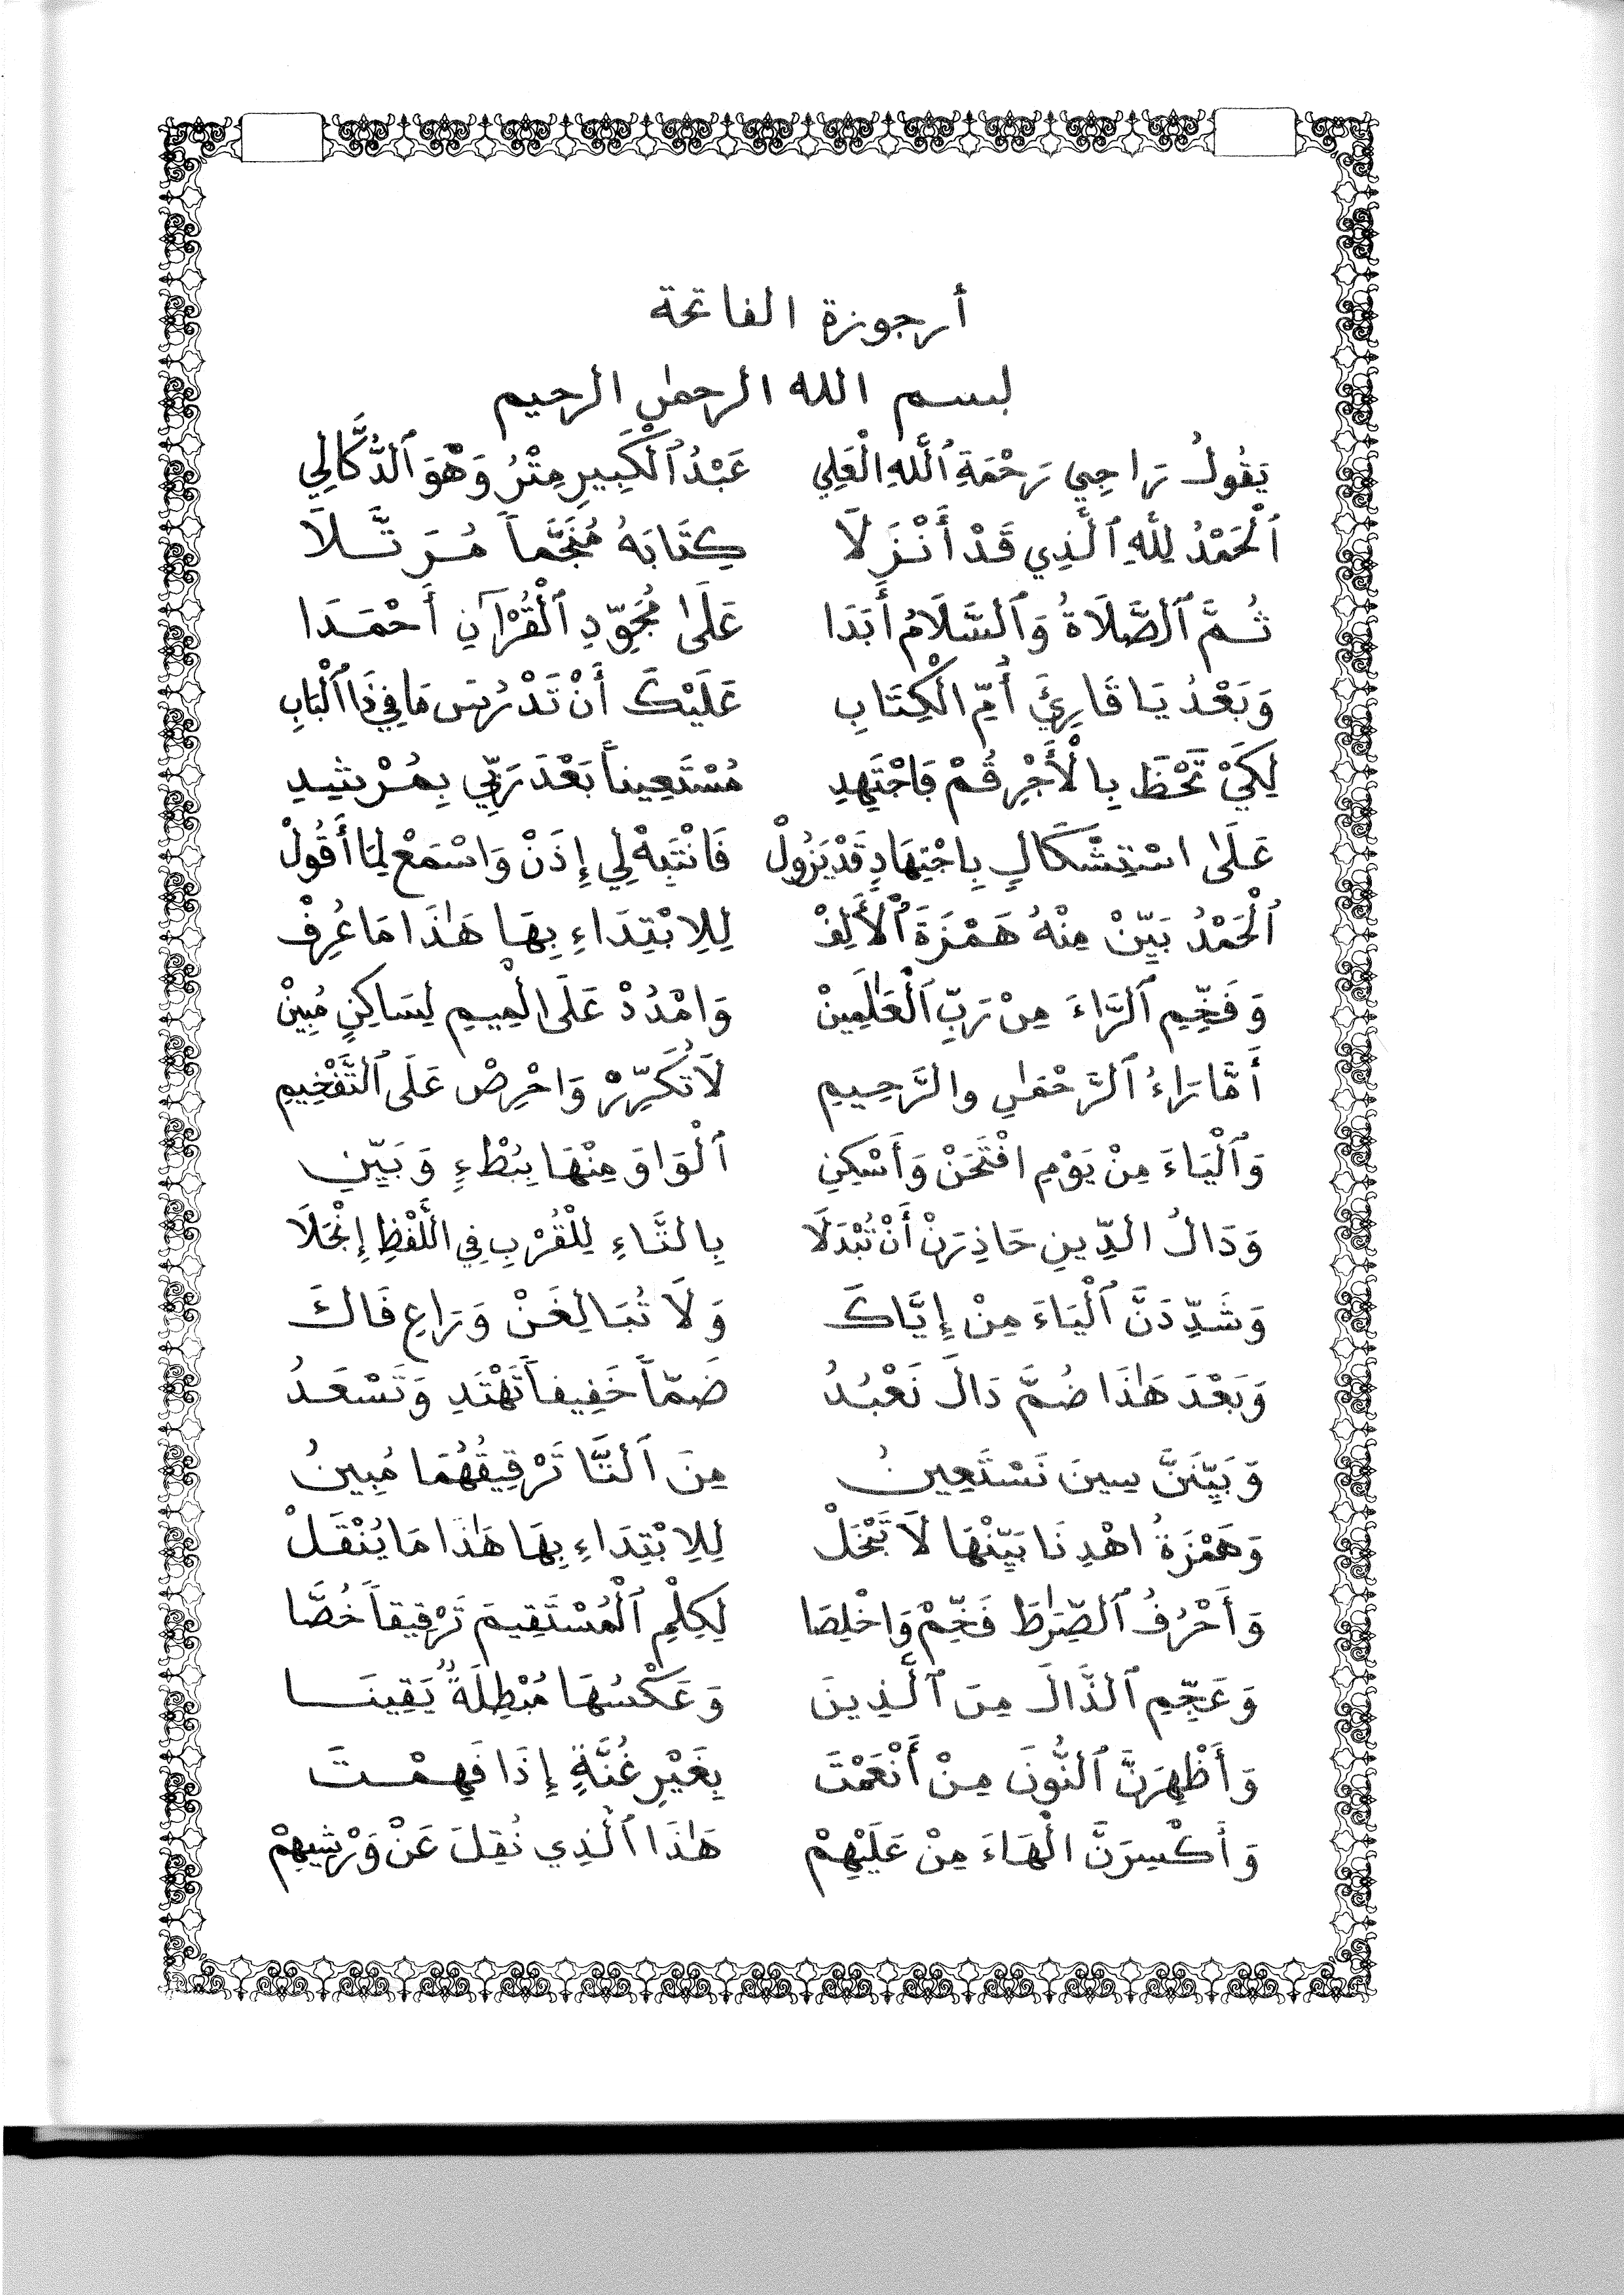 أرجوزة الفاتحة
بسم الله الرحمٰن الرحيم
يَقُولُ رَاجِي رَحْمَةِ ٱللَّهِ الْعَلِي عَبْدُ ٱلْكَبِيرِ مِتْرُ وَهْوَ ٱلدُّكَّالِي
ٱلْحَمْدُ لِلَّهِ ٱلَّذِي قَدْ أَنْزَلَا كِتَابَهُ مُنَجَّماً مُرَتَّلَا
ثُمَّ ٱلصَّلَاةُ وَٱلسَّلَامُ أَبَدَا عَلَىٰ مُجَوِّدِ ٱلْقُرْآنِ أَحْمَدَا
وَبَعْدُ يَا قَارِئَ أُمِّ الْكِتَابِ عَلَيْكَ أَنْ تَدْرُسَ مَا فِي ذَا ٱلْبَابِ
لِكَيْ تَحْظَ بِالْأَجْرِ قُمْ فَاجْتَهِدِ مُسْتَعِيناً بَعْدَ رَبِّي بِمُرْشِدِ
عَلَىٰ اسْتِشْكَالٍ بِاجْتِهَادٍ قَدْ يَزُولْ فَانْتَبِهْ لِي إِذَنْ وَاسْمَعْ لِمَا أَقُولْ
ٱلْحَمْدُ بَيِّنْ مِنْهُ هَمْزَةَ ٱلْأَلِفْ لِلِابْتِدَاءِ بِهَا هَٰذَا مَا عُرِفْ
وَفَخِّمِ ٱلرَّاءَ مِنْ رَبِّ ٱلْعَٰلَمِينْ وَامْدُدْ عَلَى الْمِيمِ لِسَاكِنٍ مُبِينْ
أَمَّا رَاءُ ٱلرَّحْمَٰنِ والرَّحِيمِ لَا تُكَرِّرْ وَاحْرِصْ عَلَى ٱلتَّفْخِيمِ
وَٱلْيَاءَ مِنْ يَوْمِ افْتَحَنْ وَأَسْكِنِ ٱلْوَاوَ مِنْهَا بِبُطْءٍ وَبَيِّنِ
وَدَالُ الدِّينِ حَاذِرَنْ أَنْ تُبْدَلَا بِالتَّاءِ لِلْقُرْبِ فِي اللَّفْظِ إِنْجَلَا
وَشَدِّدَنَّ ٱلْيَاءَ مِنْ إِيَّاكَ وَلَا تُبَالِغَنْ وَرَاعِ فَاكَ
وَبَعْدَ هَٰذَا ضُمَّ دَالَ نَعْبُدُ ضَمّاً خَفِيفاً تَهْتَدِ وَتَسْعَدُ
وَبَيِّنَنَّ سِينَ نَسْتَعِينُ مِنَ ٱلتَّا تَرْقِيقُهُمَا مُبِينُ
وَهَمْزَةُ اهْدِنَا بَيِّنْهَا لَا تَبْخَلْ لِلِابْتِدَاءِ بِهَا هَٰذَا مَا يُنْقَلْ
وَأَحْرُفُ ٱلصِّرَٰطَ فَخِّمْ وَاخْلِصَا لِكِلْمِ ٱلْمُسْتَقِيمَ تَرْقِيقاً خُصَّا
وَعَجِّمِ ٱلذَّالَ مِنَ ٱلَّذِينَ وَعَكْسُهَا مُبْطِلَةٌ يَقِينَا
وَأَظْهِرَنَّ ٱلنُّونَ مِنْ أَنْعَمْتَ بِغَيْرِ غُنَّةٍ إِذَا فَهِمْتَ
وَأَكْسِرَنَّ الْهَاءَ مِنْ عَلَيْهِمْ هَٰذَا ٱلَّذِي نُقِلَ عَنْ وَرْشِيهِمْ